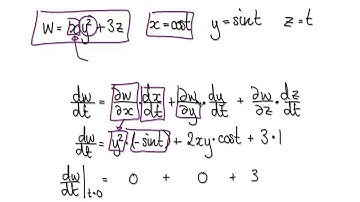 w = xy² + 3z   x = cost   y = sint   z = t
dw/dt = ∂w/∂x · dx/dt + ∂w/∂y · dy/dt + ∂w/∂z · dz/dt
dw/dt = y² · (-sint) + 2xy · cost + 3 · 1
dw/dt|t=0 = 0 + 0 + 3